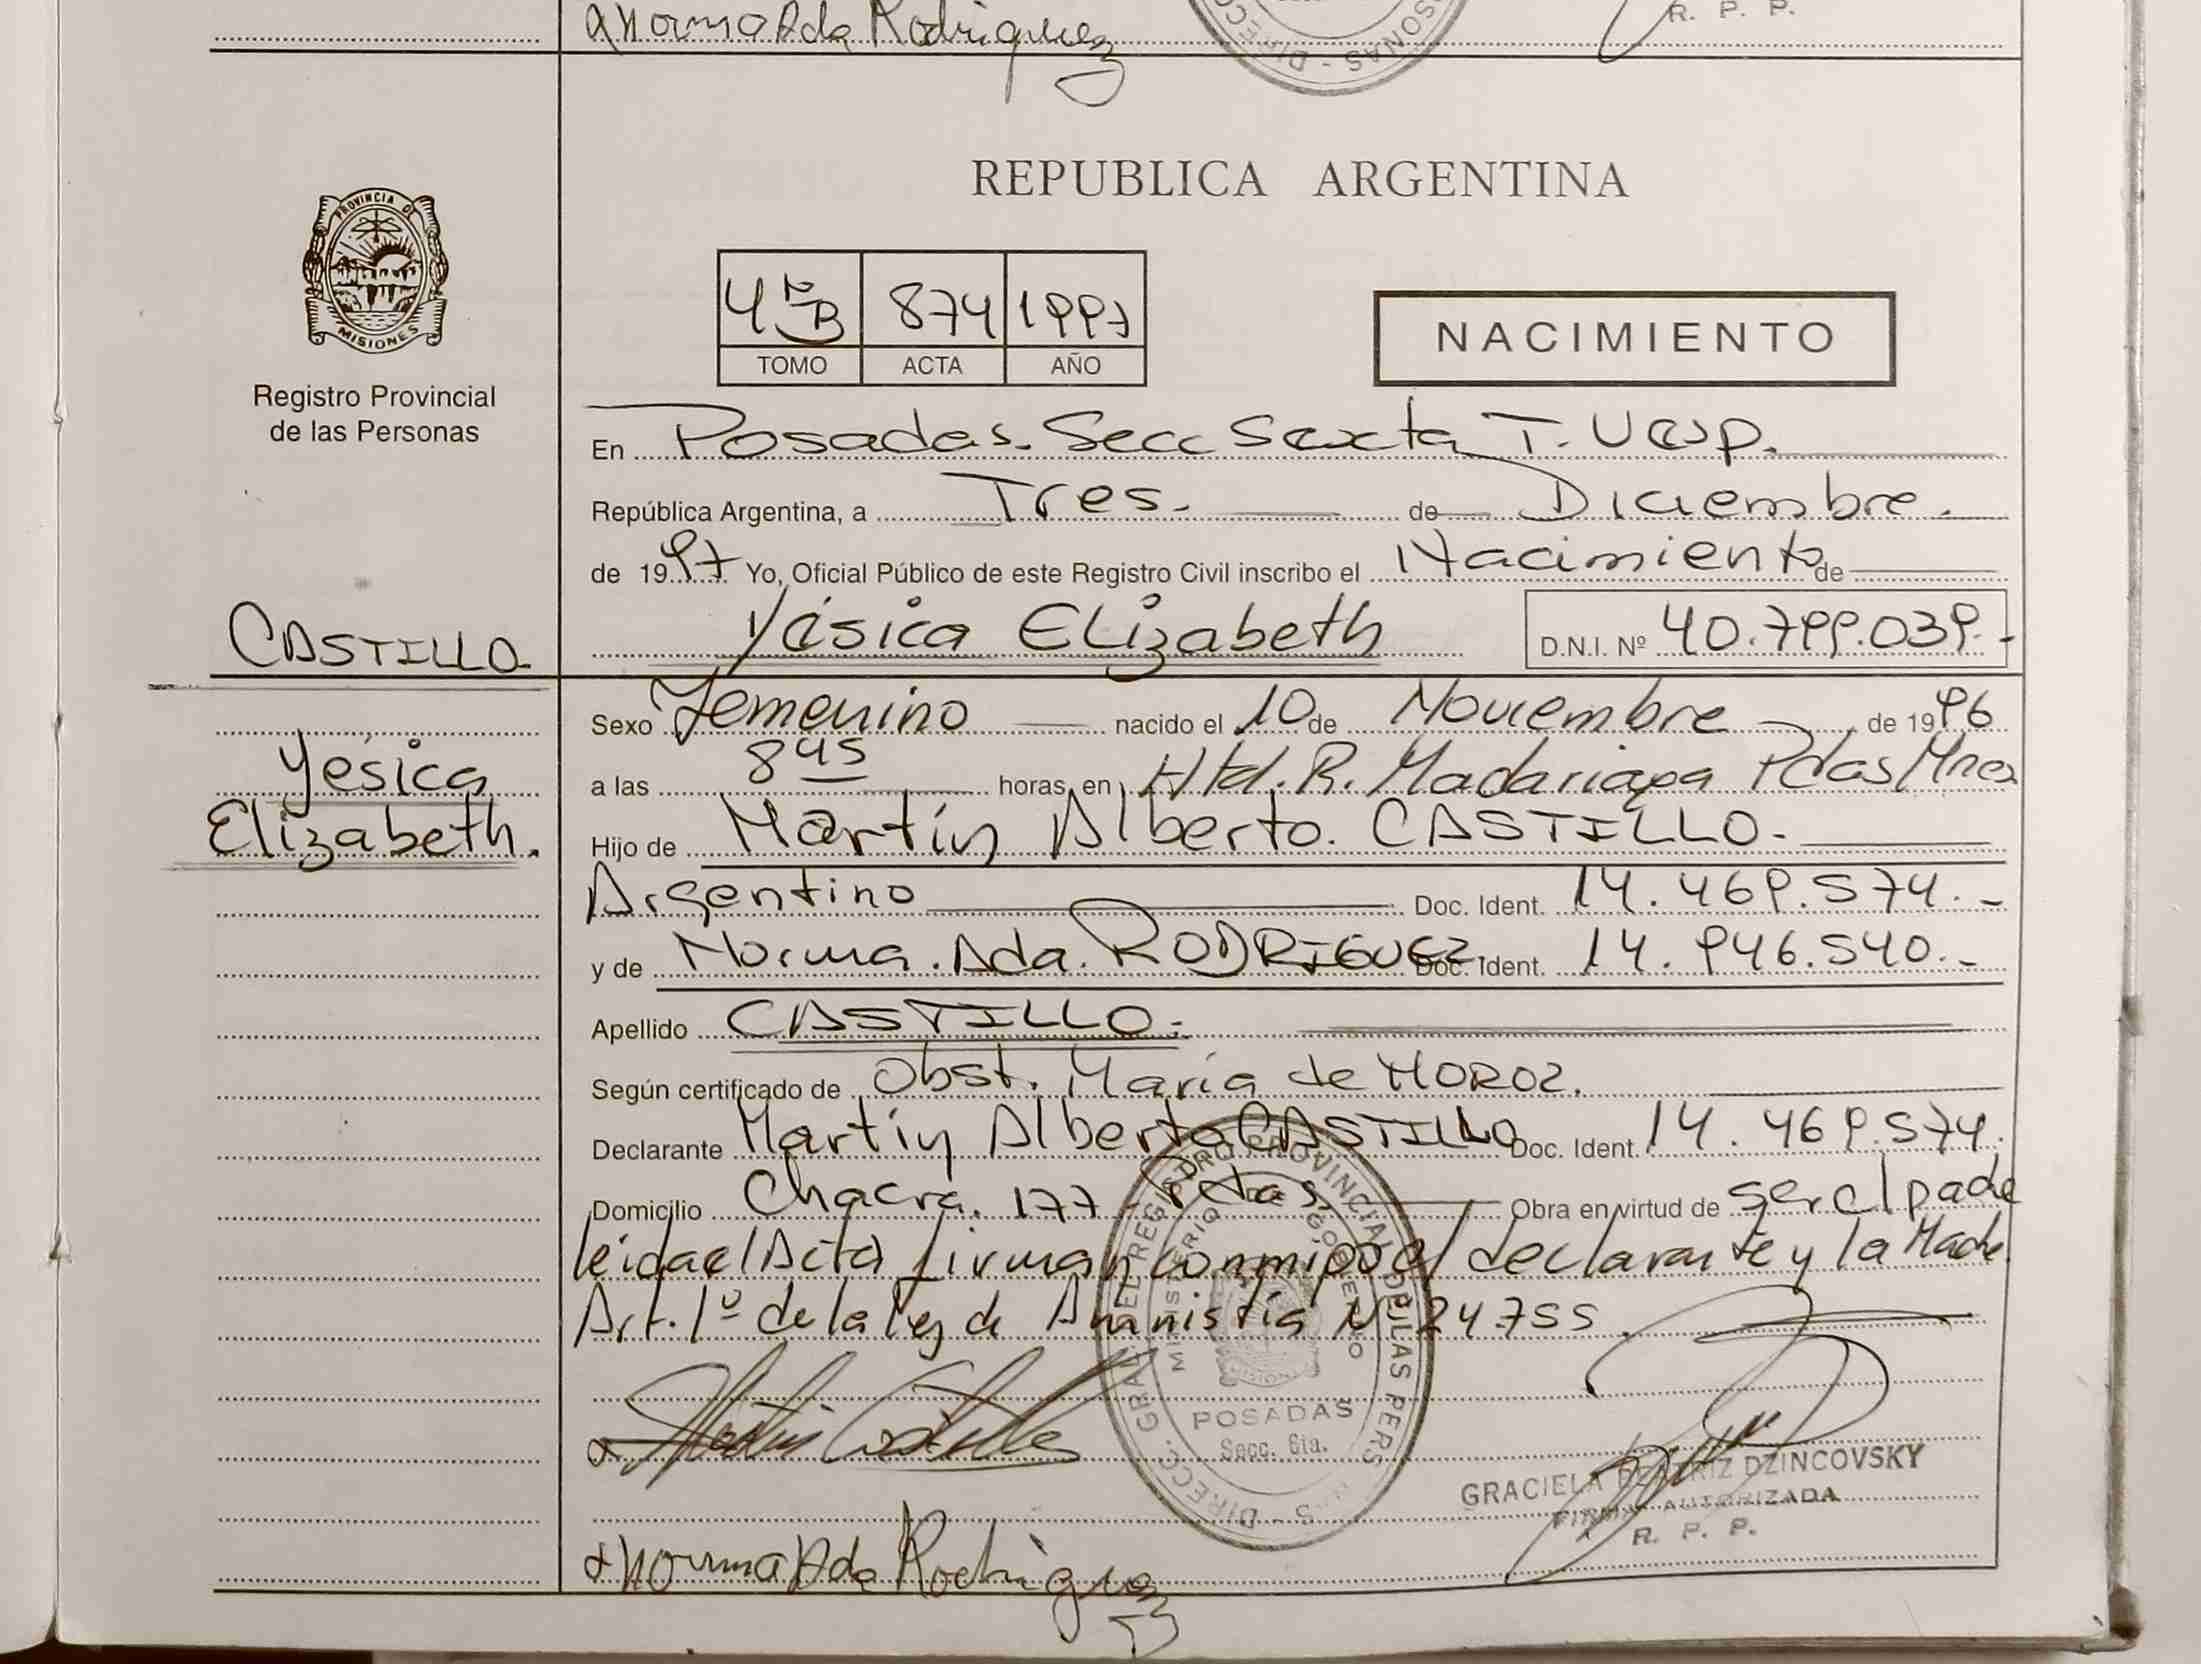 Norma Ada Rodriguez
R. P. P.
REPUBLICA ARGENTINA
PROVINCIA DE
MISIONES
Registro Provincial
de las Personas
4º B 874 1997
TOMO ACTA AÑO
NACIMIENTO
En Posadas. Secc Sexta T. Vesp.
República Argentina, a Tres. de Diciembre.
de 1997 Yo, Oficial Público de este Registro Civil inscribo el Nacimiento de
CASTILLO
Yésica Elizabeth D.N.I. Nº 40.799.039.-
Yésica
Elizabeth.
Sexo Femenino nacido el 10 de Noviembre de 1996
a las 8 45 horas, en Htal. R. Madariaga Pdas Mnes
Hijo de Martín Alberto. CASTILLO.
Argentino Doc. Ident. 14.469.574.-
y de Norma. Ada. RODRIGUEZ Doc. Ident. 14.946.540.-
Apellido CASTILLO.
Según certificado de Obst. María de MOROZ.
Declarante Martín Alberto CASTILLO Doc. Ident. 14.469.574.
Domicilio Chacra. 177 Pdas. Obra en virtud de ser el padre
leida el Acta firman conmigo el declarante y la Madre.
Art. 1º de la ley de Amnistía Nº 24.755.
DIRECC. GRAL. DEL REGISTRO PROVINCIAL DE LAS PERSONAS
MINISTERIO DE GOBIERNO
POSADAS
Secc. 6ta.
Martin Castillo
GRACIELA BEATRIZ DZINCOVSKY
FIRMA AUTORIZADA
R. P. P.
Norma Ada Rodriguez